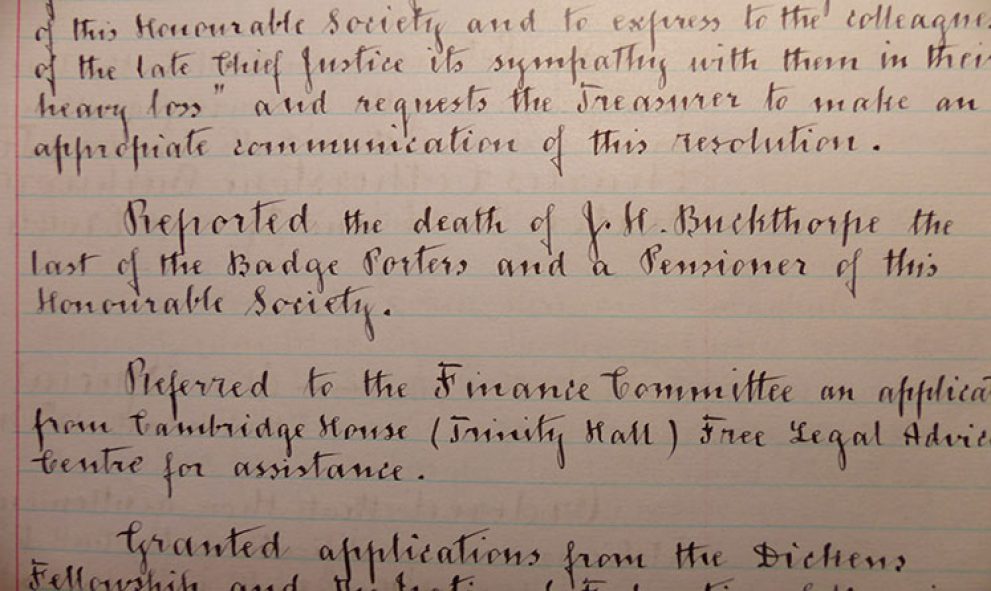 of this Honourable Society and to express to the colleagues
of the late Chief Justice its sympathy with them in their
heavy loss" and requests the Treasurer to make an
appropiate communication of this resolution.
Reported the death of J. H. Buckthorpe the
last of the Badge Porters and a Pensioner of this
Honourable Society.
Referred to the Finance Committee an applicat
from Cambridge House (Trinity Hall) Free Legal Advice
Centre for assistance.
Granted applications from the Dickens
Fellowship and the